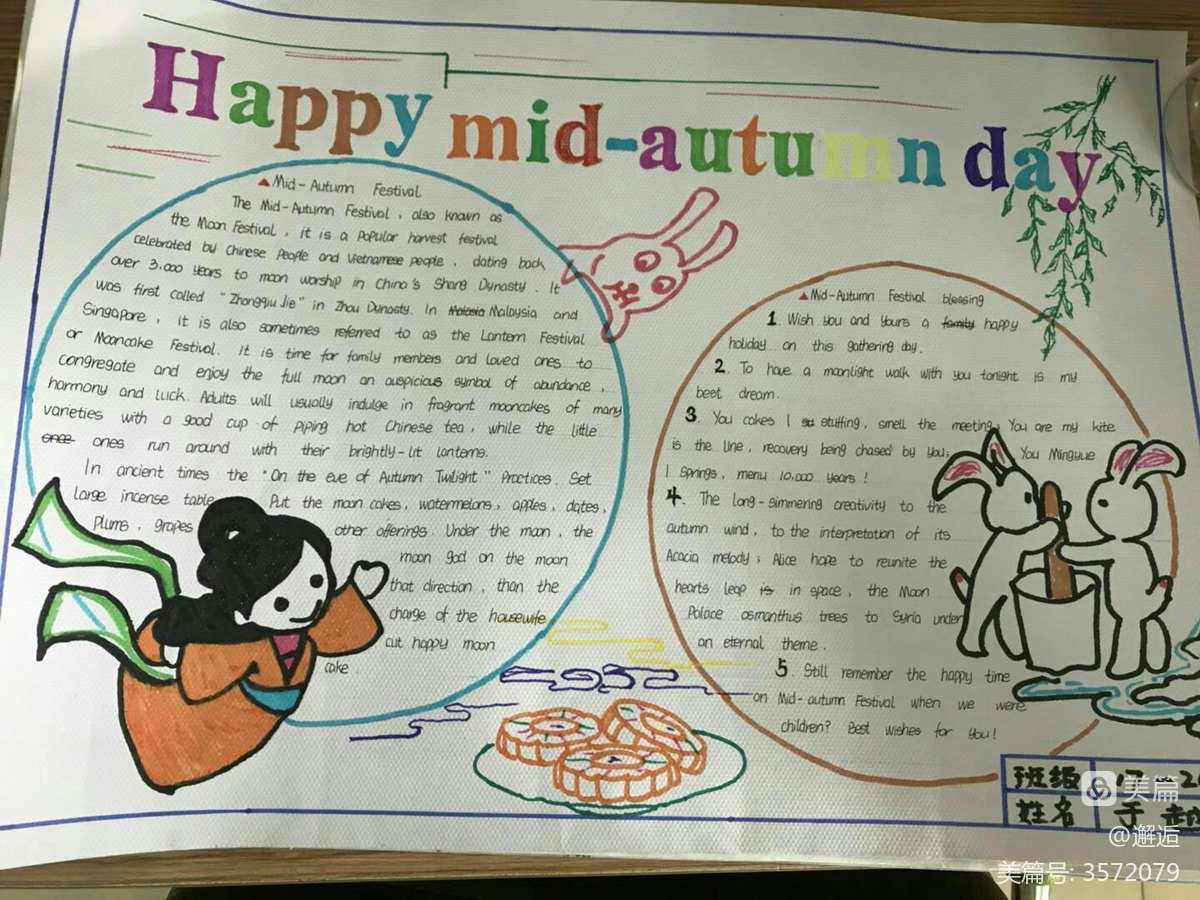 Happy mid-autumn day
▲Mid-Autumn Festival
The Mid-Autumn Festival, also known as
the Moon Festival, it is a popular harvest festival
celebrated by Chinese People and Vietnamese people, dating back
over 3,000 years to moon worship in China's Shang Dynasty. It
was first called "Zhongqiu Jie" in Zhou Dynasty. In Malaysia and
Singapore, it is also sometimes referred to as the Lantern Festival
or Mooncake Festival. it is time for family members and loved ones to
congregate and enjoy the full moon an auspicious symbol of abundance,
harmony and luck. Adults will usually indulge in fragrant mooncakes of many
varieties with a good cup of piping hot Chinese tea, while the little
once ones run around with their brightly-lit lanterns.
In ancient times the "On the eve of Autumn Twilight" Practices. Set
large incense table Put the moon cakes, watermelons, apples, dates,
Plums, grapes other offerings. Under the moon, the
moon god on the moon
that direction, than the
charge of the housewife
cut happy moon
cake.
▲Mid-Autumn Festival blessing
1. Wish you and yours a family happy
holiday on this gathering day.
2. To have a moonlight walk with you tonight is my
beet dream.
3. You cakes I stuffing, smell the meeting; You are my kite
is the line, recovery being chased by you; You Mingyue
I springs, menu 10,000 years!
4. The long-simmering creativity to the
autumn wind, to the interpretation of its
Acacia melody; Alice hope to reunite the
hearts leap is in space, the Moon
Palace osmanthus trees to Syria under
an eternal theme.
5. Still remember the happy time
on Mid-autumn Festival when we were
children? Best wishes for you!
班级
姓名 于
美篇
@邂逅
美篇号: 3572079